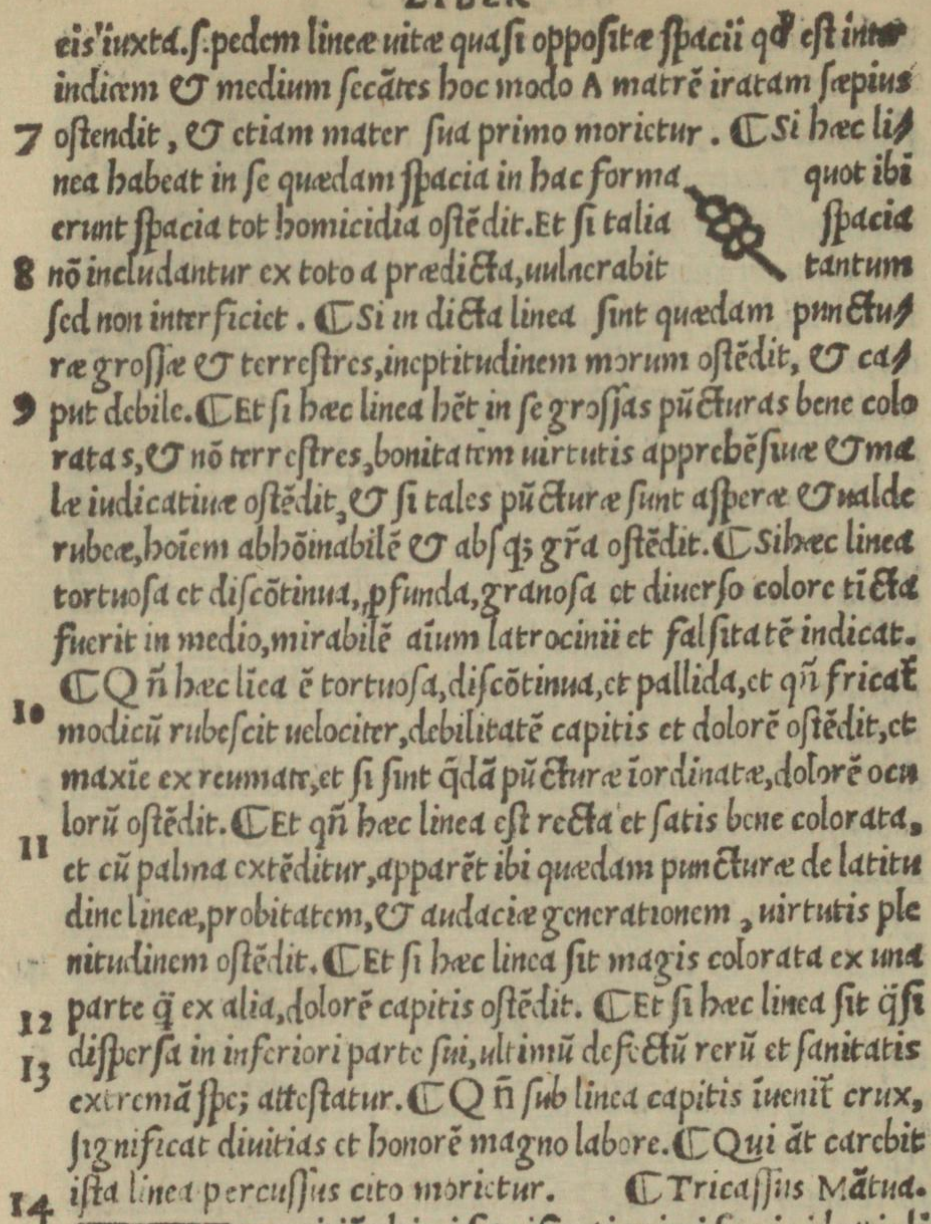 eis iuxta.ſ.pedem lineæ uitæ quaſi oppoſitæ ſpacii qď eſt inter
indicem & medium ſecātes hoc modo A matrē iratam ſæpius
7 oſtendit, & etiam mater ſua primo morietur. ⸿Si hæc li⸗
nea habeat in ſe quædam ſpacia in hac forma quot ibi
erunt ſpacia tot homicidia oſtēdit. Et ſi talia ſpacia
8 nō includantur ex toto a prædicta, uulnerabit tantum
ſed non interficiet. ⸿Si in dicta linea ſint quædam punctu⸗
ræ groſſæ & terreſtres, ineptitudinem morum oſtēdit, & ca⸗
9 put debile. ⸿Et ſi hæc linea hēt in ſe groſſas pūcturas bene colo
ratas, & nō terreſtres, bonitatem uirtutis apprehēſiuæ & ma
læ iudicatiuæ oſtēdit, & ſi tales pūcturæ ſunt aſperæ & ualde
rubeæ, hoīem abhōinabilē & abſq; gr̄a oſtēdit. ⸿Si hæc linea
tortuoſa et diſcōtinua, ꝓfunda, granoſa et diuerſo colore tīcta
fuerit in medio, mirabilē aīum latrocinii et falſitatē indicat.
⸿Qn̄ hæc līea ē tortuoſa, diſcōtinua, et pallida, et qn̄ fricat̄
10 modicū rubeſcit uelociter, debilitatē capitis et dolorē oſtēdit, et
maxīe ex reumate, et ſi ſint q̄dā pūcturæ īordinatæ, dolorē ocu
lorū oſtēdit. ⸿Et qn̄ hæc linea eſt recta et ſatis bene colorata,
11 et cū palma extēditur, apparēt ibi quædam puncturæ de latitu
dine lineæ, probitatem, & audaciæ generationem, uirtutis ple
nitudinem oſtēdit. ⸿Et ſi hæc linea ſit magis colorata ex una
12 parte q̄ ex alia, dolorē capitis oſtēdit. ⸿Et ſi hæc linea ſit q̄ſi
13 diſperſa in inferiori parte ſui, ultimū defectū rerū et ſanitatis
extremā ſpe; atteſtatur. ⸿Qn̄ ſub linea capitis īuenit̄ crux,
ſignificat diuitias et honorē magno labore. ⸿Qui āt carebit
14 iſta linea percuſſus cito morietur. ⸿Tricaſſus Mātua.